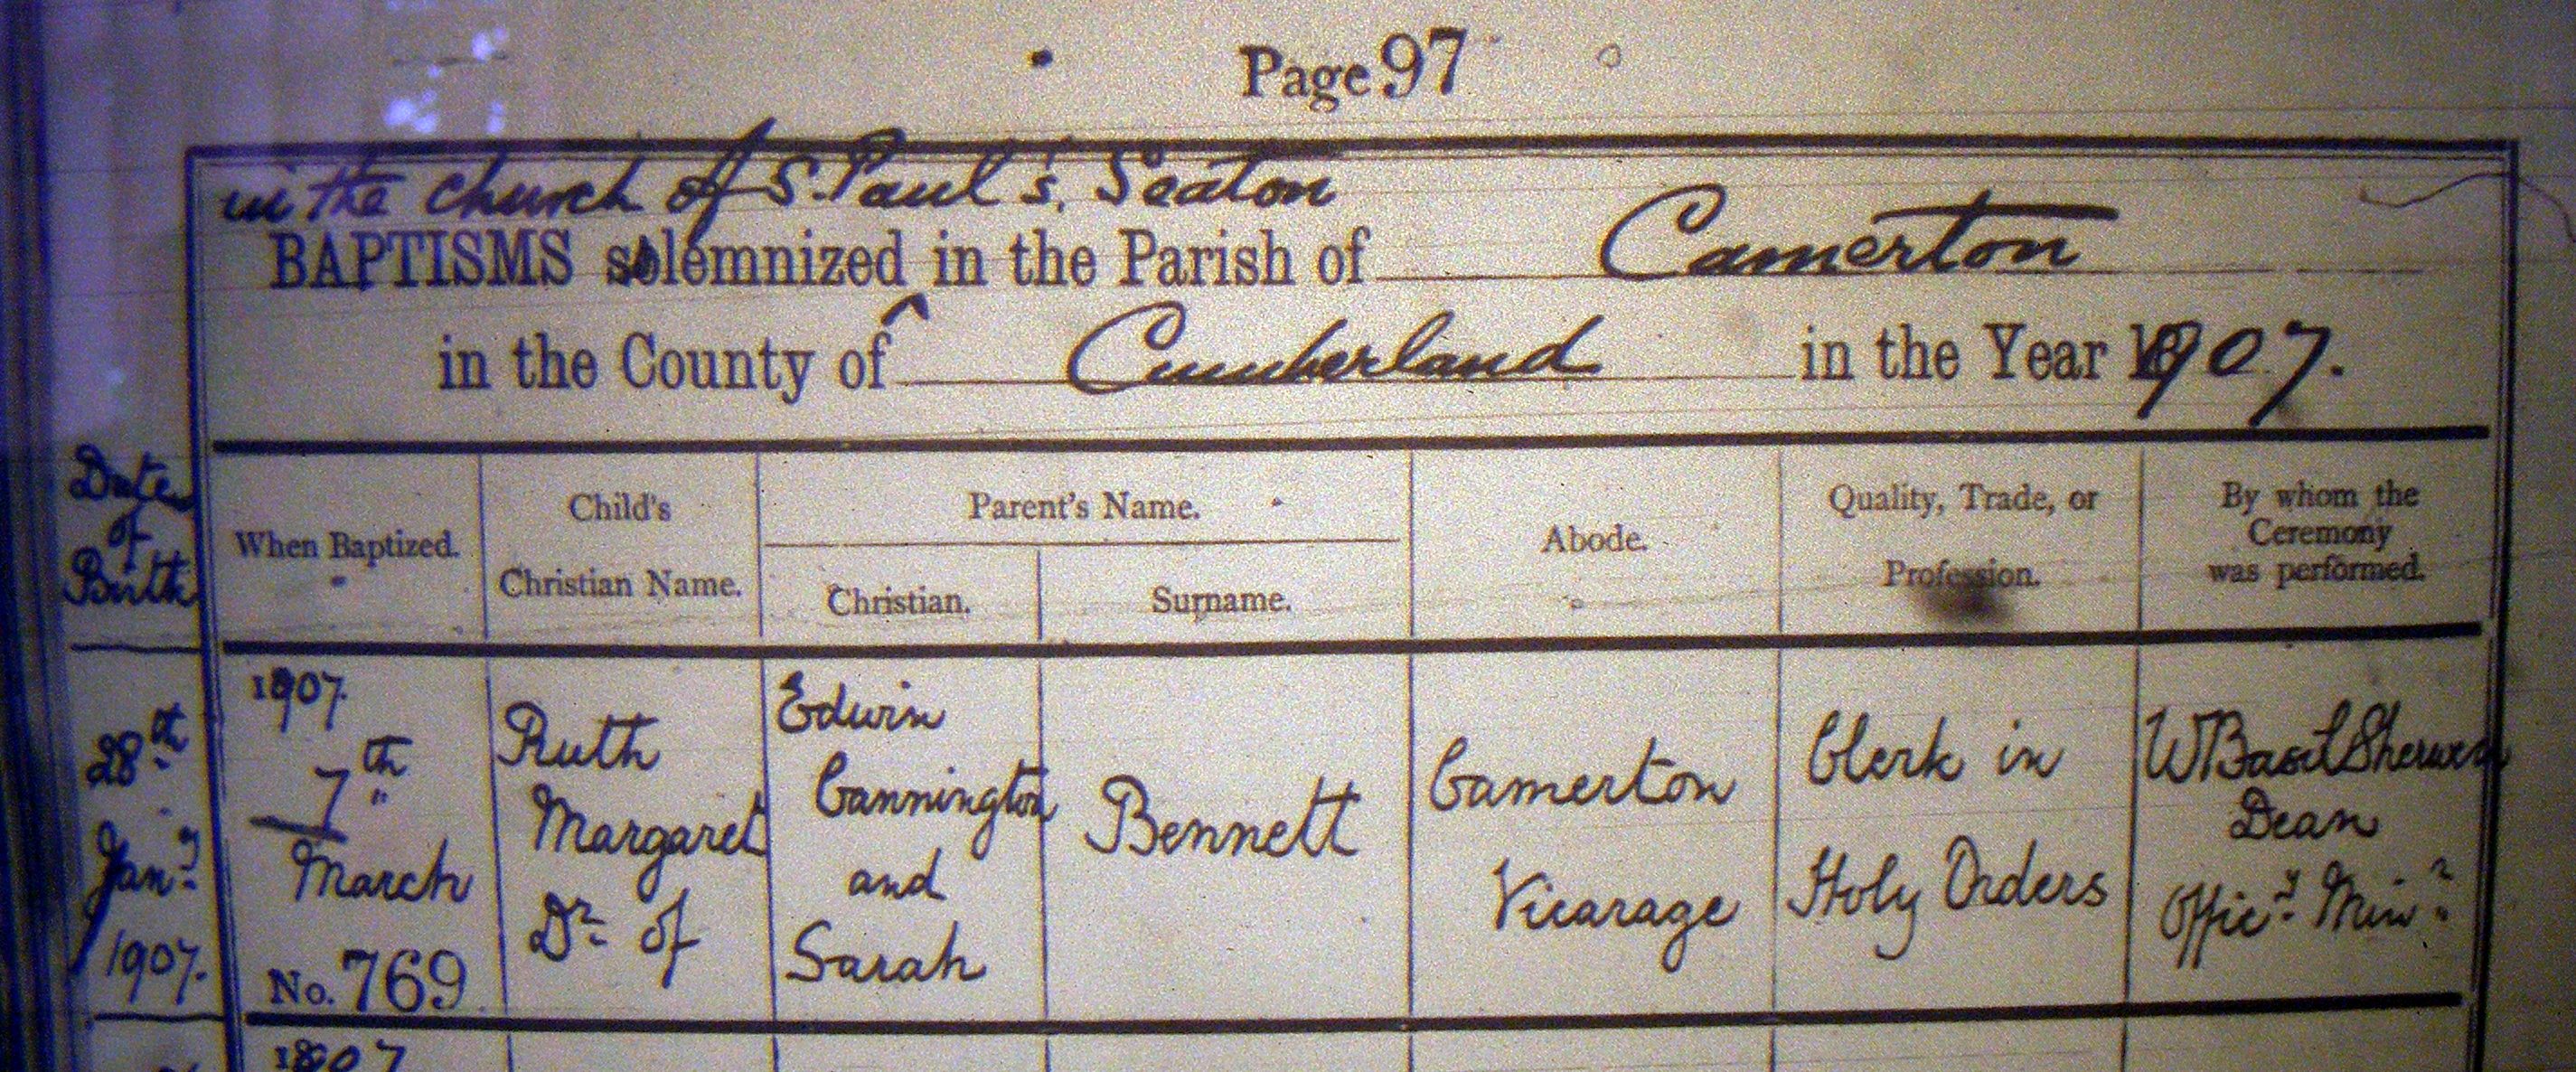 Page 97
in the church of S. Paul's, Seaton
BAPTISMS solemnized in the Parish of Camerton
in the County of Cumberland in the Year 1907.
Date
of
Birth
When Baptized.
Child's
Christian Name.
Parent's Name.
Christian.
Surname.
Abode.
Quality, Trade, or
Profession.
By whom the
Ceremony
was performed.
28th
Jany
1907.
1907.
7th
March
No. 769
Ruth
Margaret
Dr of
Edwin
Cannington
and
Sarah
Bennett
Camerton
Vicarage
Clerk in
Holy Orders
W Basil Sherwen
Dean
Officy Minr
1907